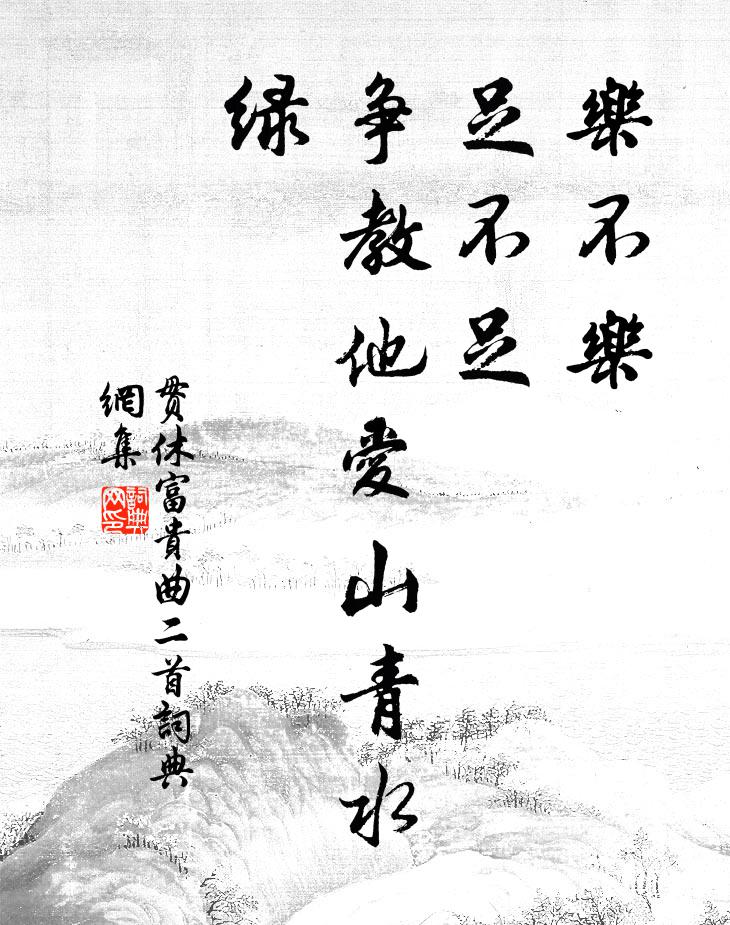 樂不樂
足不足
争教他愛山青水
緑
贯休富貴曲二首詞典
網集
詞典
网印